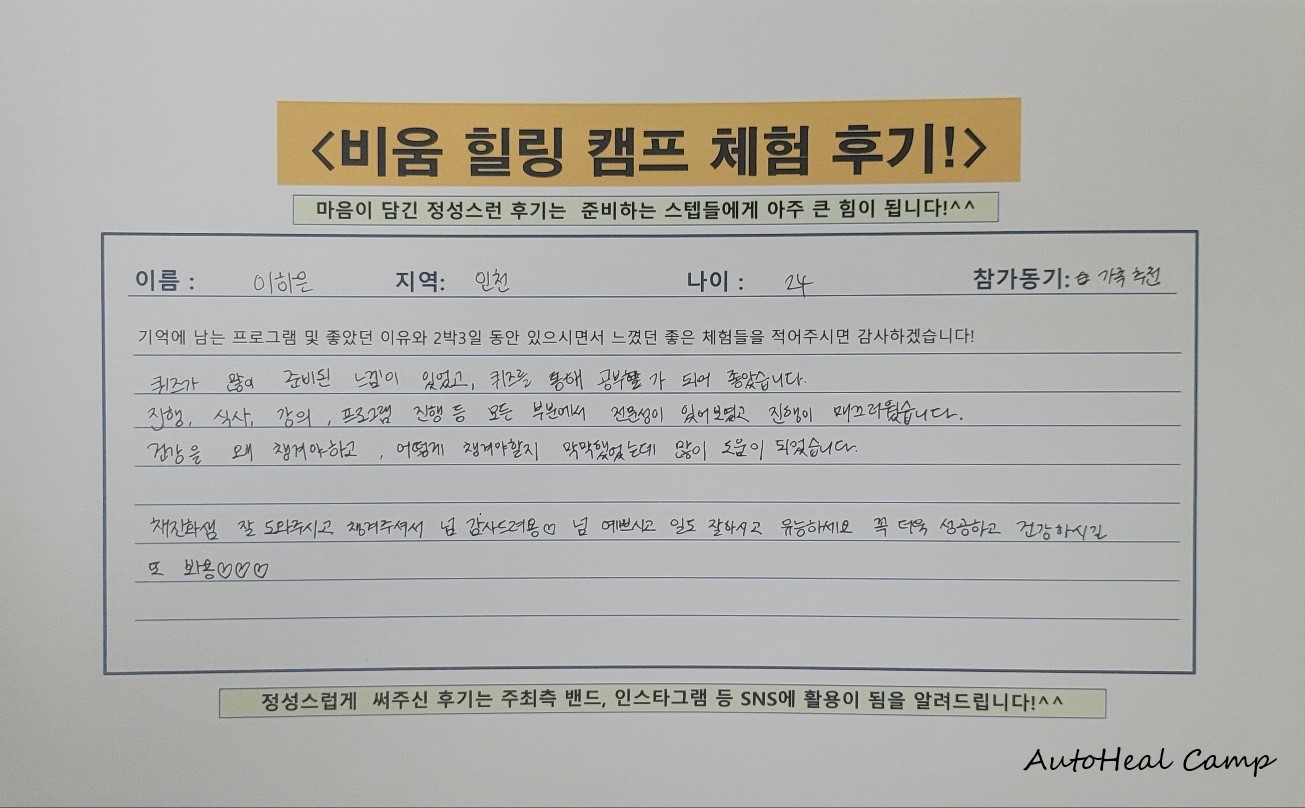 <비움 힐링 캠프 체험 후기!>
마음이 담긴 정성스런 후기는 준비하는 스텝들에게 아주 큰 힘이 됩니다!^^
이름 : 이하은 지역: 인천 나이 : 24 참가동기: 가족 추천
기억에 남는 프로그램 및 좋았던 이유와 2박3일 동안 있으시면서 느꼈던 좋은 체험들을 적어주시면 감사하겠습니다!
퀴즈가 많이 준비된 느낌이 있었고, 퀴즈를 통해 공부가 되어 좋았습니다.
진행, 식사, 강의, 프로그램 진행 등 모든 부분에서 전문성이 있어보였고 진행이 매끄러웠습니다.
건강을 왜 챙겨야하고, 어떻게 챙겨야할지 막막했었는데 많이 도움이 되었습니다.
채진화샘 잘 도와주시고 챙겨주셔서 넘 감사드려용♡ 넘 예쁘시고 일도 잘하시고 유능하세요 꼭 더욱 성공하고 건강하시길
또 봐용♡♡♡
정성스럽게 써주신 후기는 주최측 밴드, 인스타그램 등 SNS에 활용이 됨을 알려드립니다!^^
AutoHeal Camp